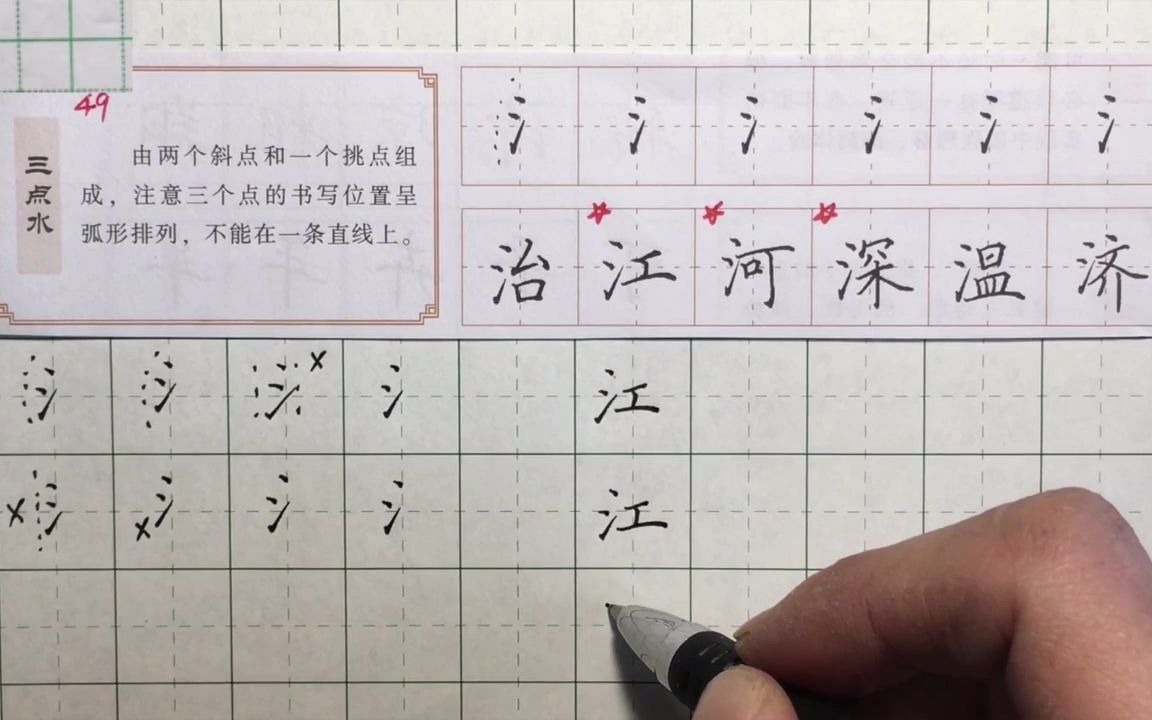 49
三点水
由两个斜点和一个挑点组
成，注意三个点的书写位置呈
弧形排列，不能在一条直线上。
氵 氵 氵 氵 氵 氵
治 江 河 深 温 济
氵 氵 氵 x 氵 江
x 氵 x 氵 氵 氵 江